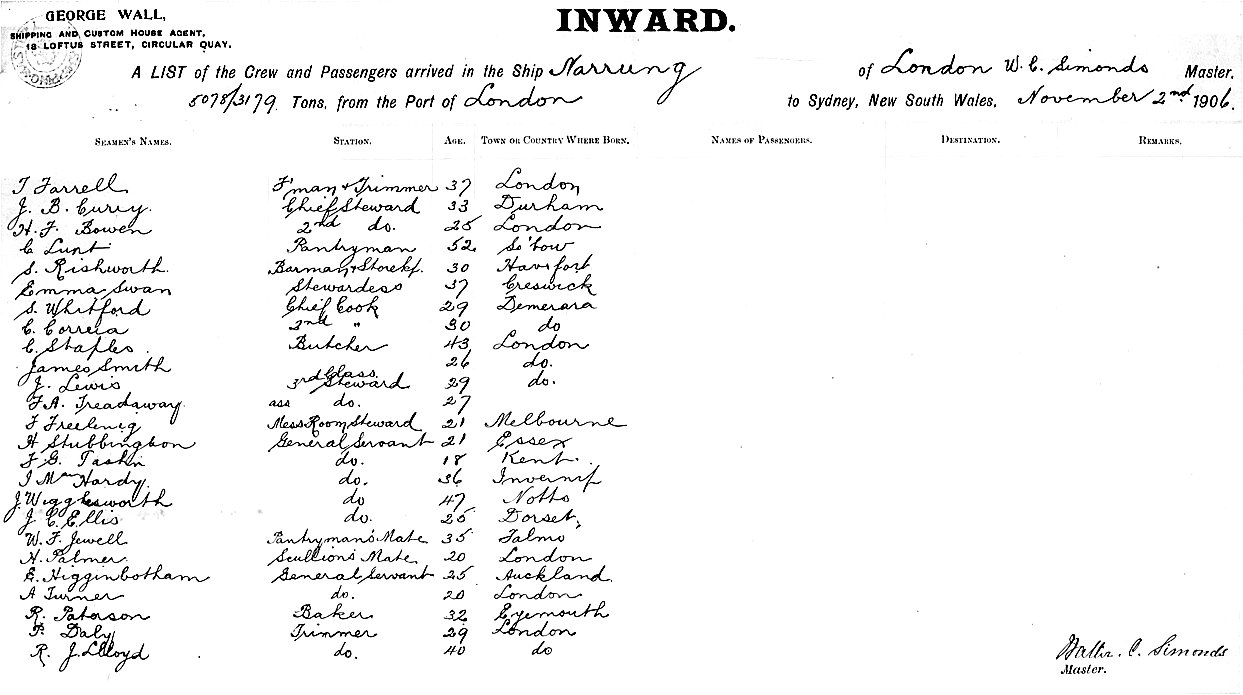 GEORGE WALL,
SHIPPING AND CUSTOM HOUSE AGENT,
18 LOFTUS STREET, CIRCULAR QUAY.
INWARD.
A LIST of the Crew and Passengers arrived in the Ship Narrung of London W. C. Simonds Master.
5078/3179 Tons, from the Port of London to Sydney, New South Wales, November 2nd 1906.
SEAMEN'S NAMES. STATION. AGE. TOWN OR COUNTRY WHERE BORN. NAMES OF PASSENGERS. DESTINATION. REMARKS.
T Farrell F'man & Trimmer 37 London
J. B. Curry. Chief Steward 33 Durham
H. F. Bowen 2nd do. 25 London
C Lunt Pantryman 52
S. Rishworth. Barman & Storekp. 30
Emma Swan Stewardess 37 Creswick
S. Whitford Chief Cook 29 Demerara
C. Correia 2nd " 30 do
C. Staples. Butcher 43 London
James Smith 26 do.
J. Lewis 3rd Class Steward 29 do.
F. A. Treadaway. ass do. 27
F Melbourne Mess Room Steward 21
H Stubbington General Servant 21 Essex
F. G. do. 18 Kent.
J McHardy. do. 36
J Wigglesworth do 47 Notts
J C. Ellis do. 25 Dorset,
W. F. Jewell Pantryman's Mate 35
H. Palmer. Scullion's Mate 20 London
E. Higginbotham General Servant 25 Auckland.
A Turner do. 20 London
R. Paterson Baker. 32 Eyemouth
P. Daly Trimmer 29 London
R. J. Lloyd do. 40 do
Walter. C. Simonds
Master.